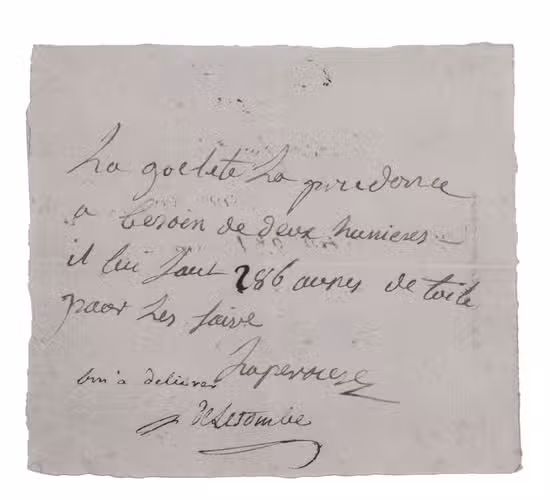 La goelete La prudence
a besoin de deux huniers
il lui faut 286 aunes de toile
pour Les faire
Laperouse
bon a delivrer